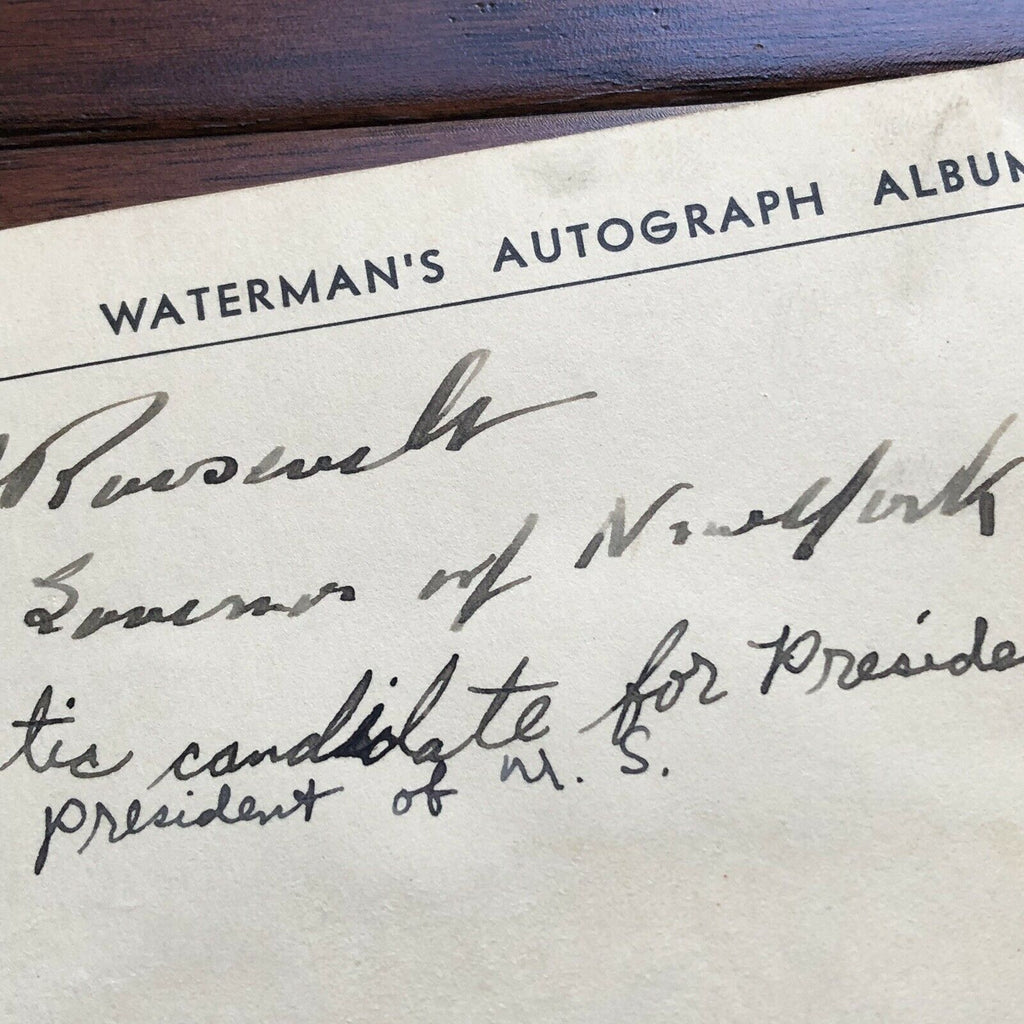 WATERMAN'S AUTOGRAPH ALBUM
Roosevelt
Governor of New York
tic candidate for Preside
president of U. S.